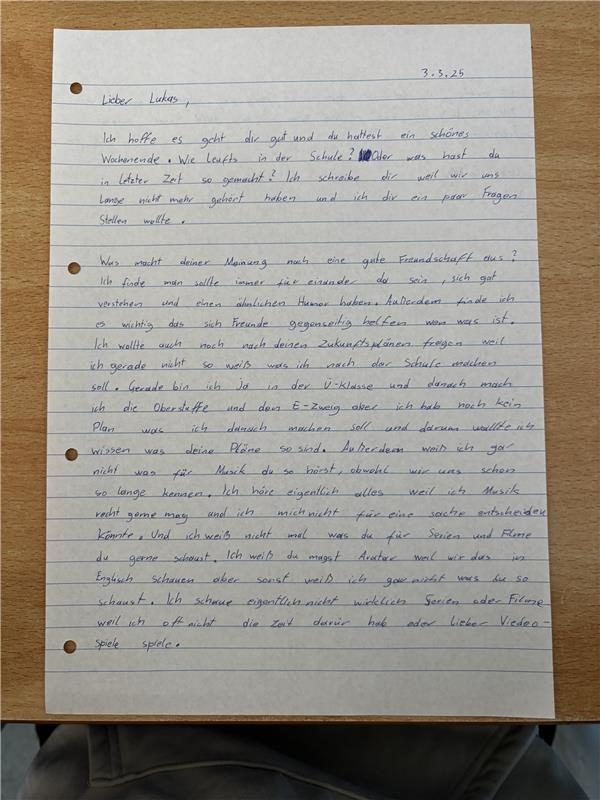 3.3.25
Lieber Lukas,
Ich hoffe es geht dir gut und du hattest ein schönes
Wochenende. Wie leufts in der Schule? Oder was hast du
in letzter Zeit so gemacht? Ich schreibe dir weil wir uns
lange nicht mehr gehört haben und ich dir ein paar Fragen
stellen wollte.
Was macht deiner Meinung nach eine gute Freundschaft aus?
Ich finde man sollte immer für einander da sein, sich gut
verstehen und einen ähnlichen Humor haben. Außerdem finde ich
es wichtig das sich Freunde gegenseitig helfen wen was ist.
Ich wollte auch noch nach deinen Zukunftsplänen fragen weil
ich gerade nicht so weiß was ich nach der Schule machen
soll. Gerade bin ich Ja in der Ü-klasse und danach mach
ich die Oberstuffe und den E-Zweig aber ich hab noch kein
Plan was ich danach machen soll und darum wollte ich
wissen was deine Pläne so sind. Außerdem weiß ich gar
nicht was für Musick du so hörst, obwohl wir uns schon
so lange kennen. Ich höre eigentlich alles weil ich Musik
recht gerne mag und ich mich nicht für eine sache entscheiden
könnte. Und ich weiß nicht mal was du für Serien und Filme
du gerne schaust. Ich weiß du magst Avatar weil wir das in
Englisch schauen aber sonst weiß ich gar nichts was du so
schaust. Ich schaue eigentlich nicht wirklich Serien oder Filme
weil ich oft nicht die Zeit darür hab oder lieber Viedeo-
spiele spiele.